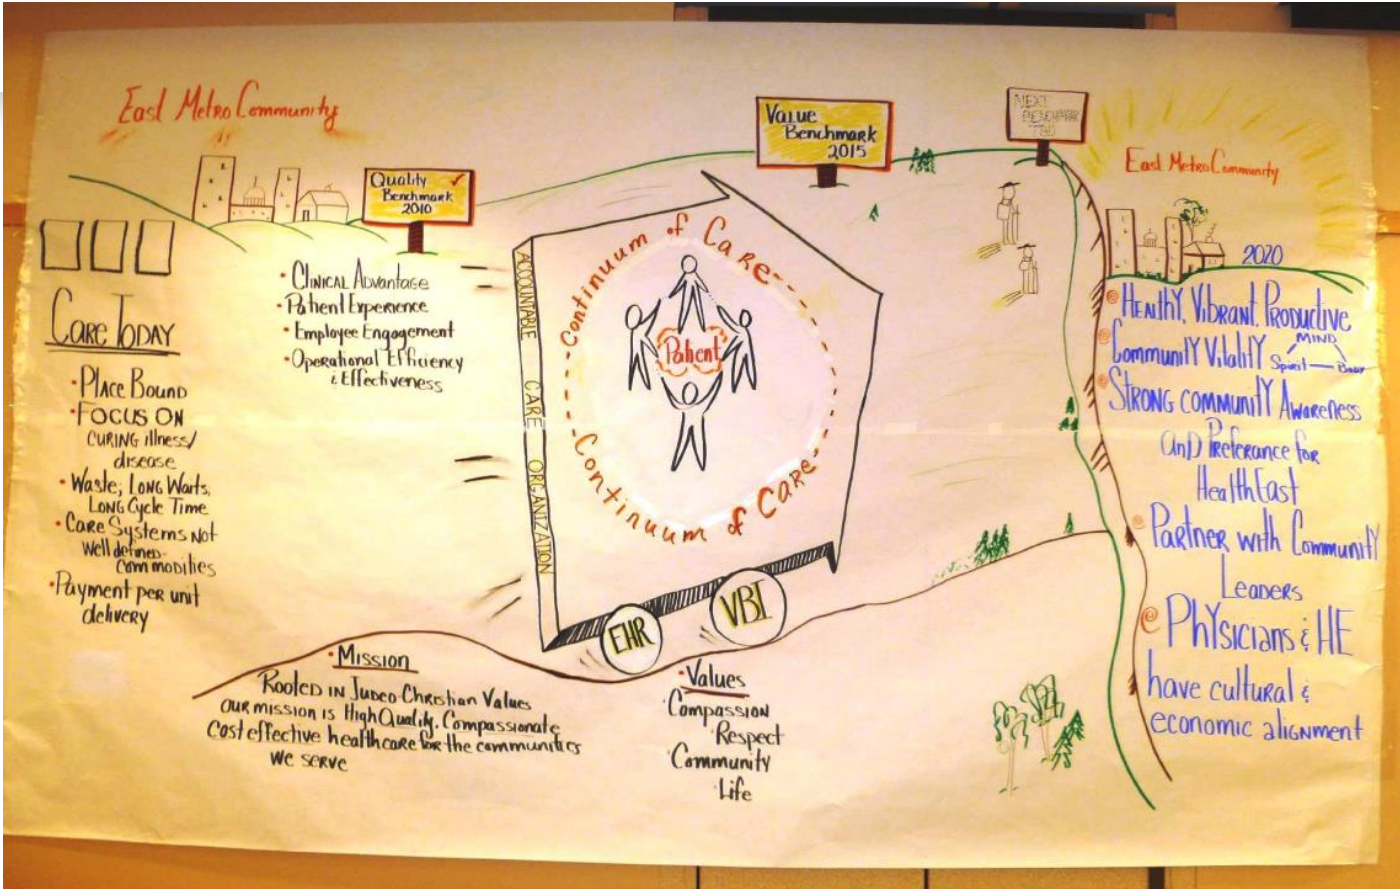 East Metro Community
Quality
Benchmark
2010
Care Today
• Place Bound
• Focus on
curing illness/
disease
• Waste, Long Waits,
Long Cycle Time
• Care Systems Not
well defined-
commodities
• Payment per unit
delivery
• Clinical Advantage
• Patient Experience
• Employee Engagement
• Operational Efficiency
& Effectiveness
ACCOUNTABLE CARE ORGANIZATION
Continuum of Care
Patient
Continuum of Care
EHR
VBI
• Mission
Rooted in Judeo-Christian Values
our mission is High Quality, Compassionate
Cost effective healthcare for the communities
we serve
• Values
Compassion
Respect
Community
Life
Value
Benchmark
2015
NEXT
BENCHMARK
TBD
East Metro Community
2020
Healthy, Vibrant, Productive
Community Vitality
MIND
Spirit — Body
Strong community Awareness
and Preferance for
HealthEast
Partner with Community
Leaders
Physicians & HE
have cultural &
economic alignment